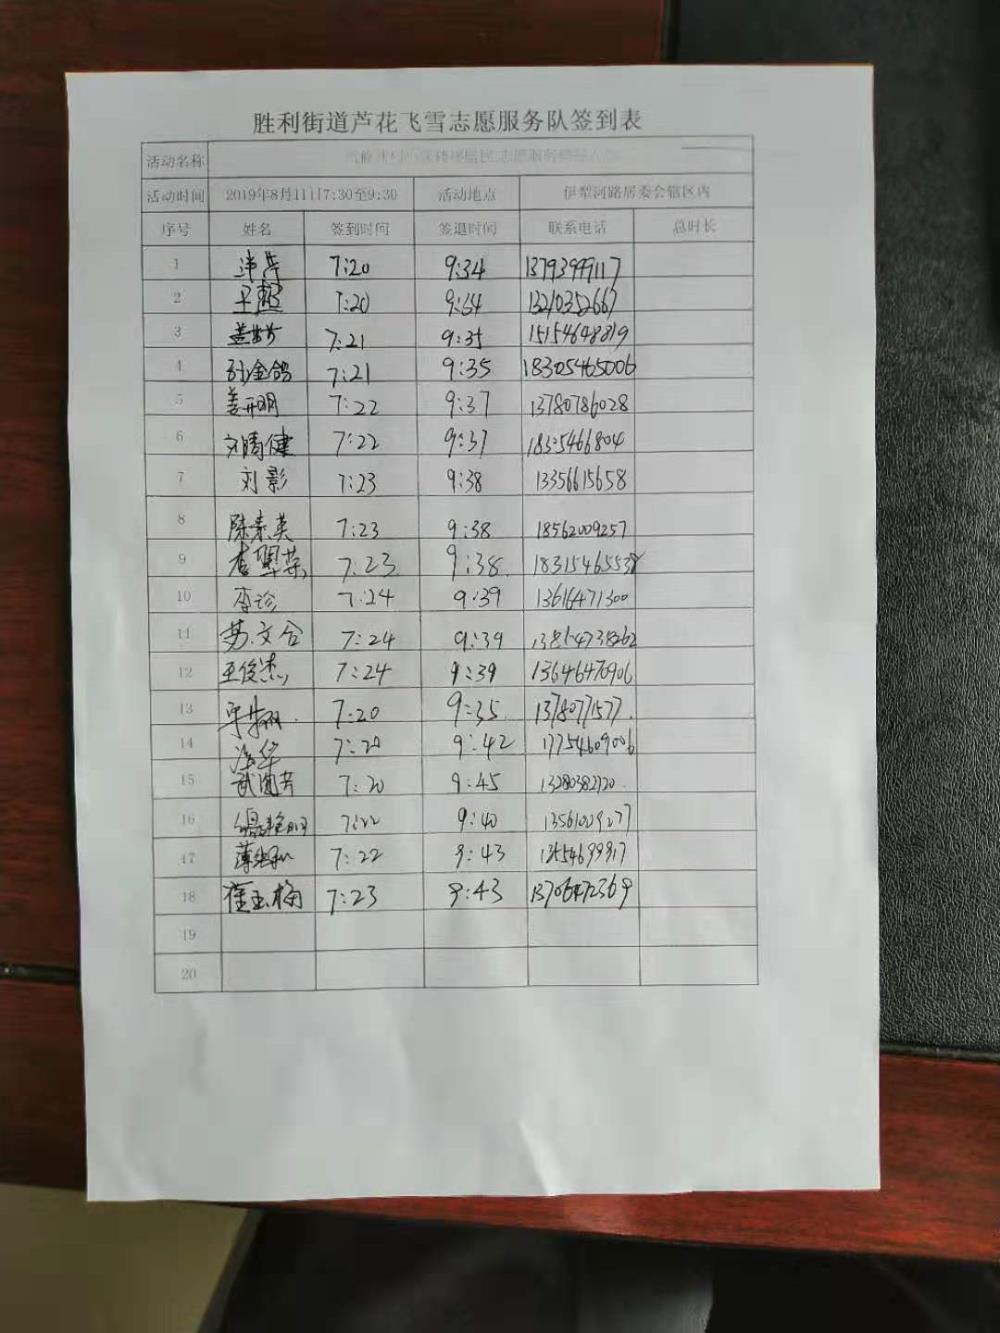 胜利街道芦花飞雪志愿服务队签到表
活动名称
活动时间 2019年8月11日7:30至9:30 活动地点 伊犁河路居委会辖区内
序号 姓名 签到时间 签退时间 联系电话 总时长
1 7:20 9:34 13793999117
2 王超 7:20 9:34 13210352667
3 盖芳芳 7:21 9:35 15154648819
4 孙金鸽 7:21 9:35 18305465006
5 姜开明 7:22 9:37 13780786028
6 刘晴健 7:22 9:37
7 刘影 7:23 9:38 13356615658
8 陈素英 7:23 9:38 18562009257
9 李翠荣 7:23 9:38
10 李珍 7:24 9:39 13616471300
11 苏文合 7:24 9:39
12 王俊杰 7:24 9:39 13646476906
13 7:20 9:35 13780771577
14 7:20 9:42 17754609006
15 7:20 9:45 13280382120
16 7:22 9:40 13561009277
17 7:22 9:43
18 崔玉梅 7:23 9:43 13706472369
19
20